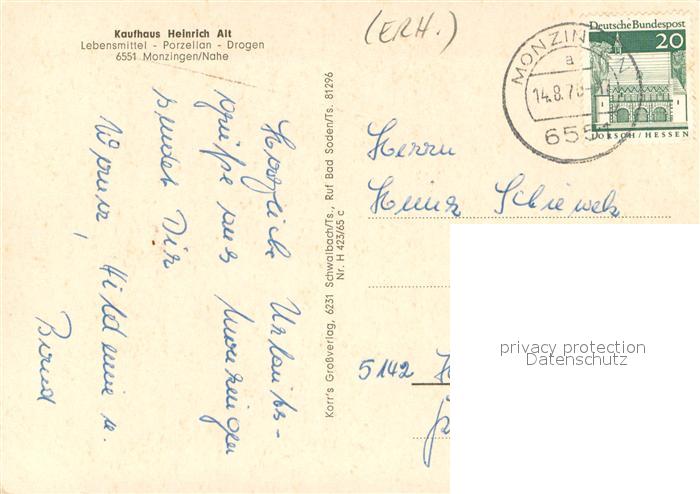 Kaufhaus Heinrich Alt
Lebensmittel - Porzellan - Drogen
6551 Monzingen/Nahe
(ERH.)
MONZINGEN
a
14.8.70
6551
Deutsche Bundespost
20
LORSCH/HESSEN
Herzliche Urlaubs-
grüße aus Monzingen
sendet Dir
Werner, Hildemie u.
Bernd
Korr's Großverlag, 6231 Schwalbach/Ts., Ruf Bad Soden/Ts. 81296
Nr. H 423/65 c
Herrn
Heinz Schieweck
5142
privacy protection
Datenschutz